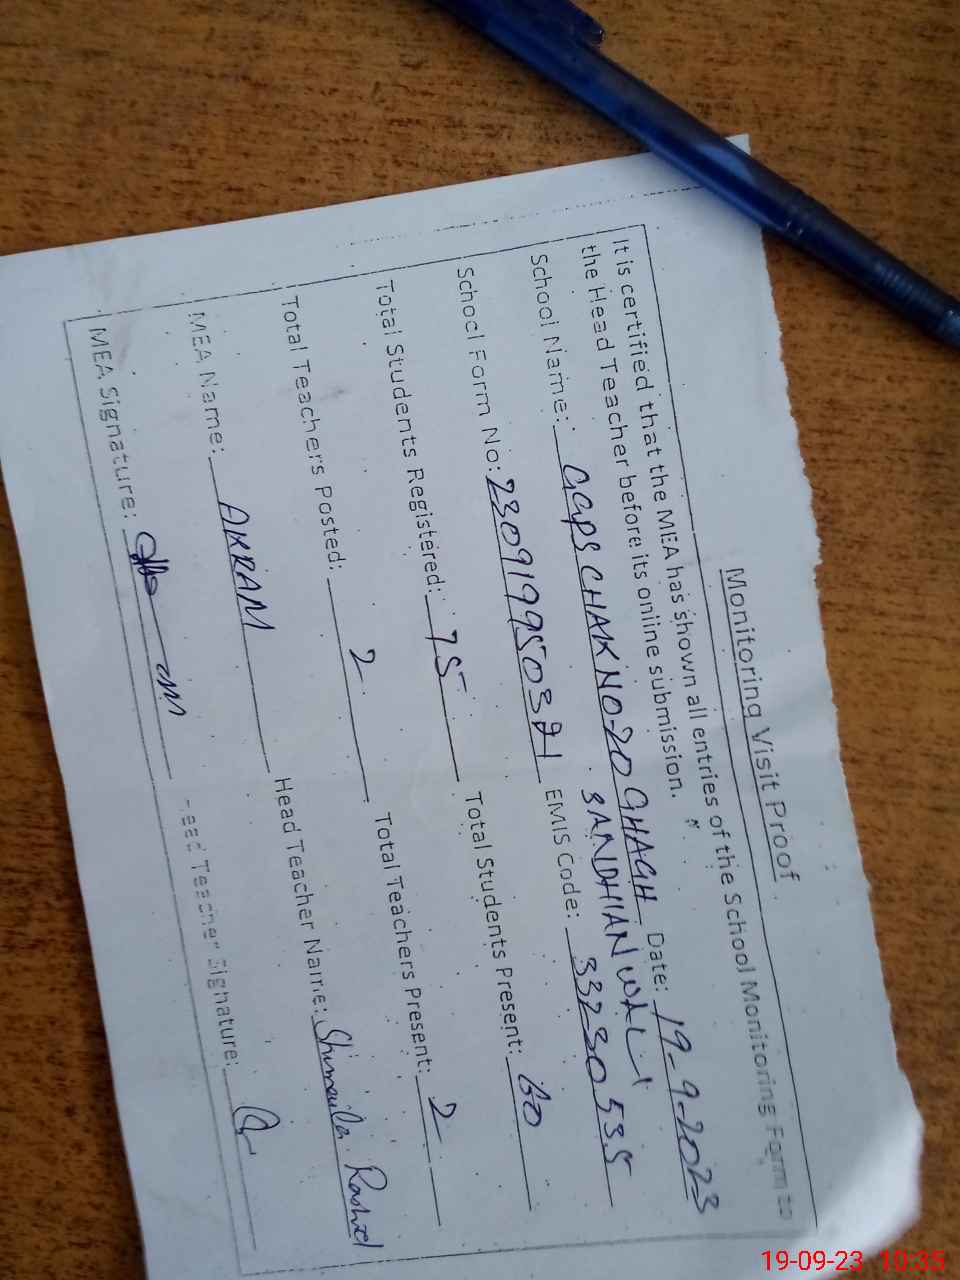 Monitoring Visit Proof
It is certified that the MEA has shown all entries of the School Monitoring Form to
the Head Teacher before its online submission.
School Name: GGPS CHAK NO-20 GHAGH Date: 19-9-2023
SANDHIANWALI
School Form No: 230919950321 EMIS Code: 33230535
Total Students Registered: 75 Total Students Present: 60
Total Teachers Posted: 2 Total Teachers Present: 2
MEA Name: AKRAM Head Teacher Name: Shumaila Rashid
MEA Signature: Head Teacher Signature:
19-09-23 10:35